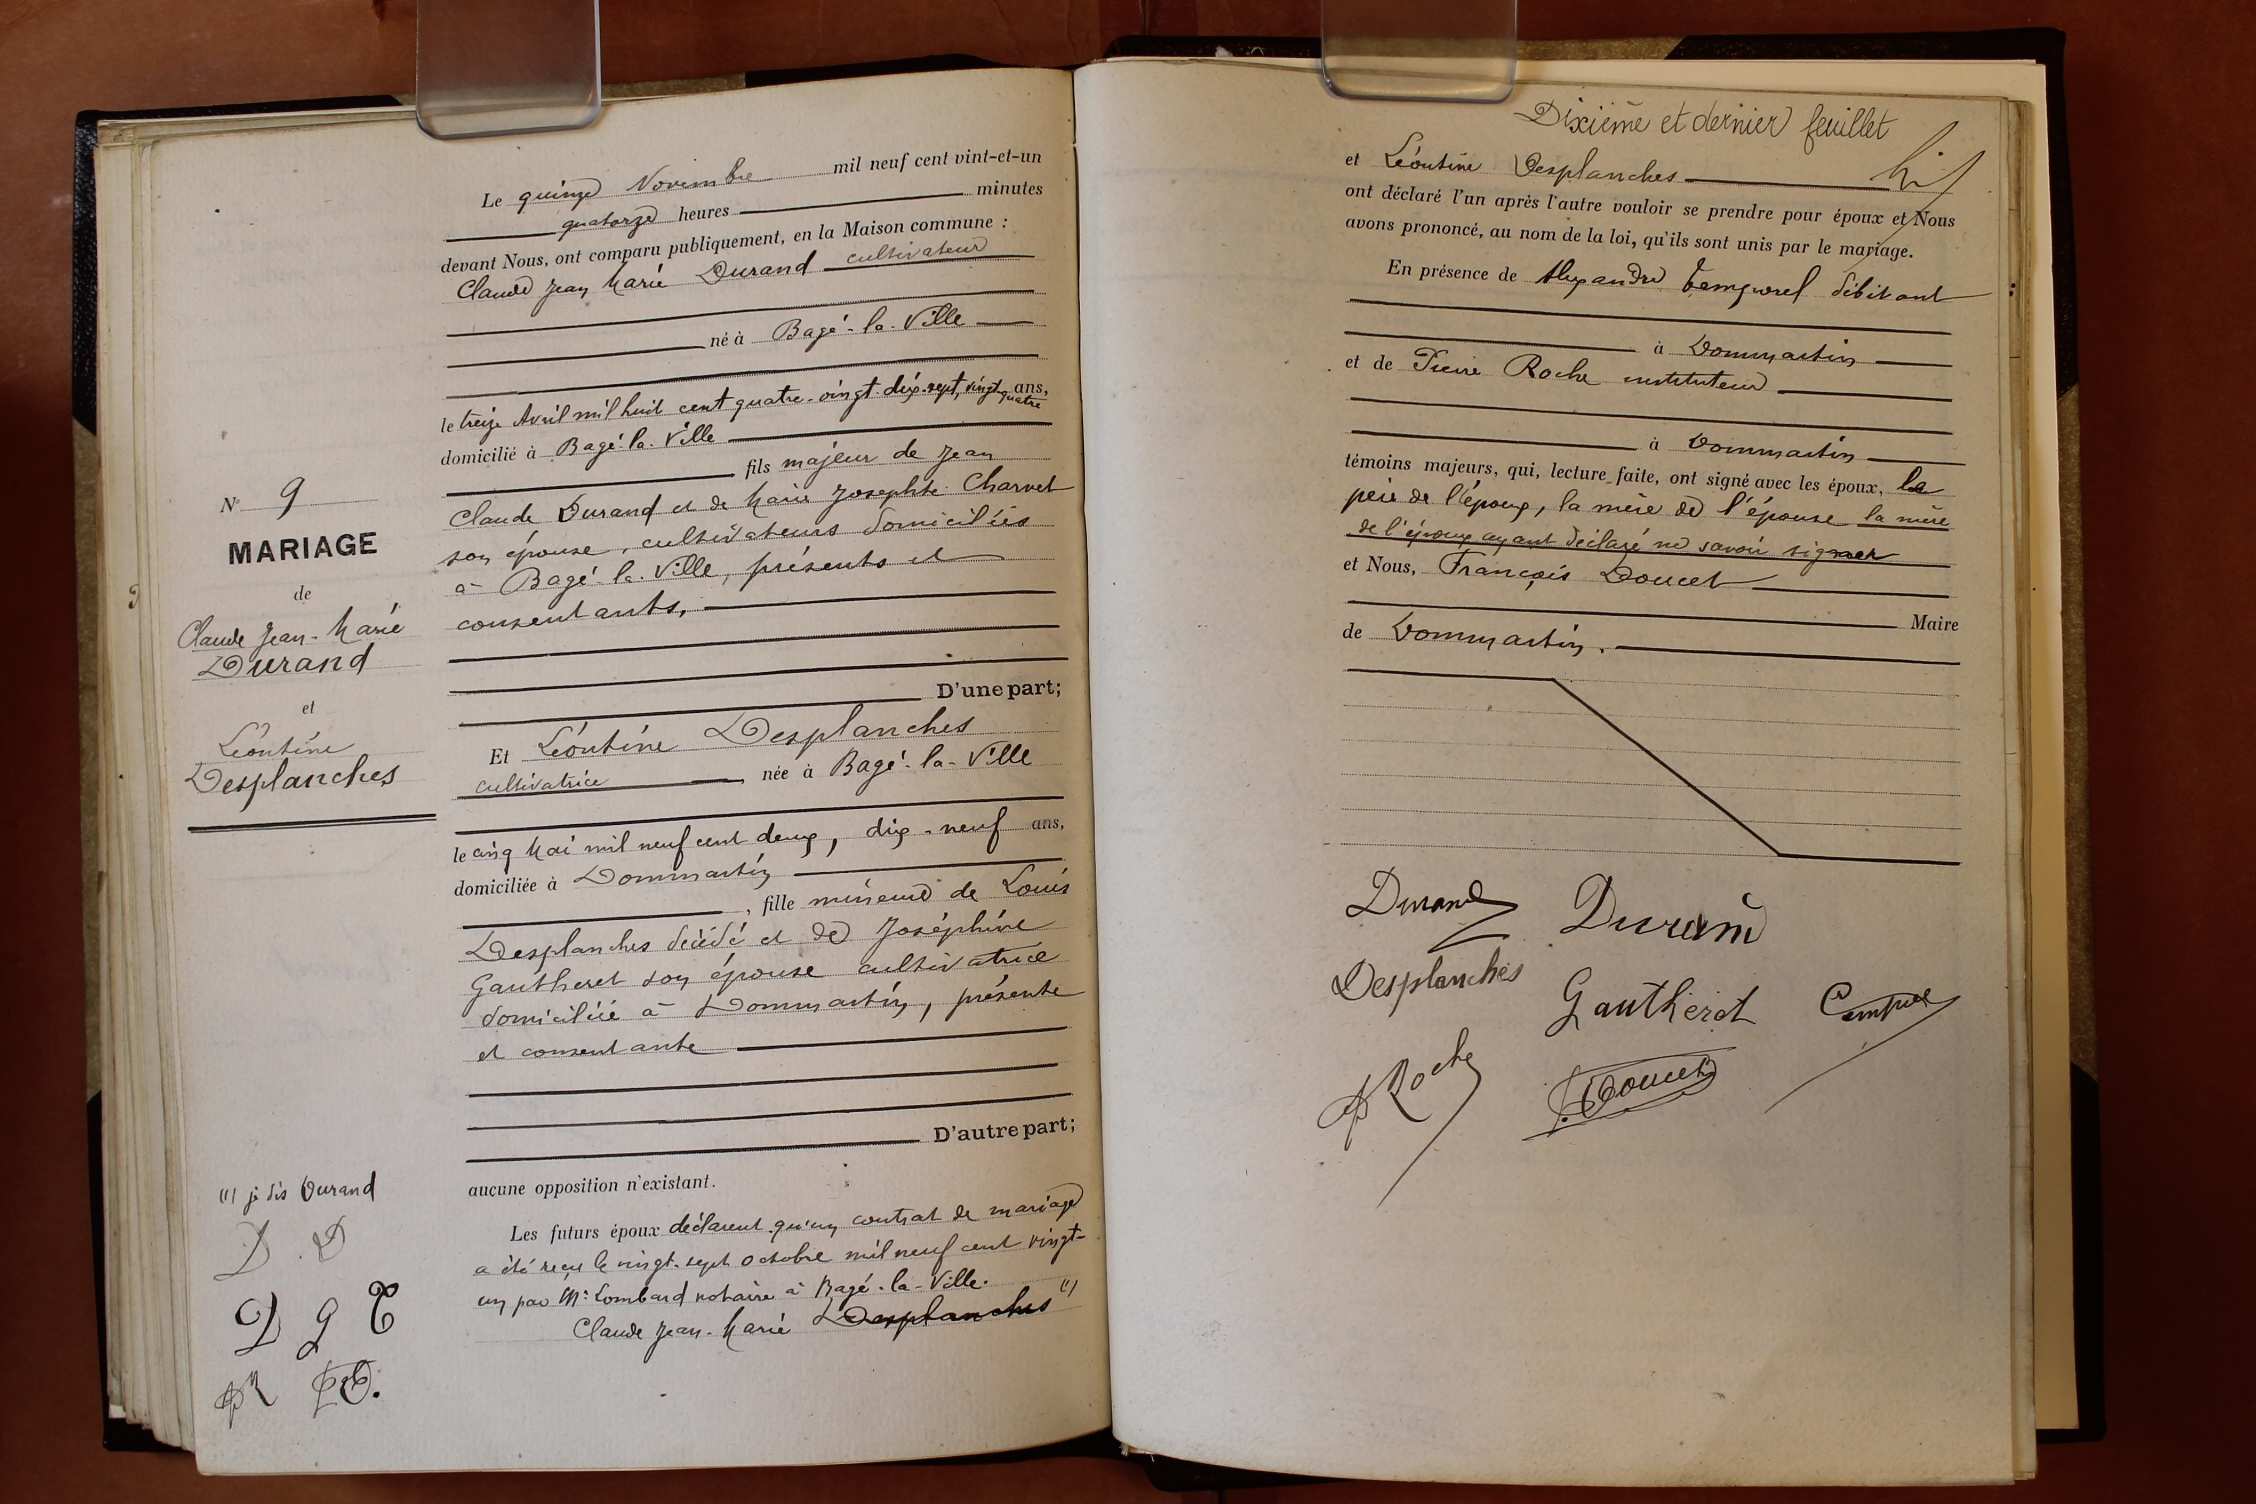 N° 9
MARIAGE
de
Claude Jean-Marie
Durand
et
Léontine
Desplanches
(1) je dis Durand
D . D
D G T
PR FD.
Le quinze Novembre mil neuf cent vint-et-un
quatorze heures minutes
devant Nous, ont comparu publiquement, en la Maison commune :
Claude Jean Marie Durand cultivateur
né à Bagé-la-Ville
le treize Avril mil huit cent quatre-vingt-dix-sept, vingt-quatre ans,
domicilié à Bagé-la-Ville
fils majeur de Jean
Claude Durand et de Marie Josephte Charvet
son épouse, cultivateurs domiciliés
à Bagé-la-Ville, présents et
consentants,
D'une part;
Et Léontine Desplanches
cultivatrice née à Bagé-la-Ville
le cinq Mai mil neuf cent deux, dix-neuf ans,
domiciliée à Dommartin
, fille mineure de Louis
Desplanches décédé et de Joséphine
Gautheret son épouse cultivatrice
domiciliée à Dommartin, présente
et consentante
D'autre part;
aucune opposition n'existant.
Les futurs époux déclarent qu'un contrat de mariage
a été reçu le vingt-sept octobre mil neuf cent vingt-
un par Me Lombard notaire à Bagé-la-Ville.
Claude Jean-Marie Desplanches (1)
Dixième et dernier feuillet
et Léontine Desplanches
ont déclaré l'un après l'autre vouloir se prendre pour époux et Nous
avons prononcé, au nom de la loi, qu'ils sont unis par le mariage.
En présence de Alexandre Temporel débitant
à Dommartin
et de Pierre Roche instituteur
à Dommartin
témoins majeurs, qui, lecture faite, ont signé avec les époux, le
père de l'époux, la mère de l'épouse la mère
de l'époux ayant déclaré ne savoir signer
et Nous, François Doucet
Maire
de Dommartin.
Durand Durand
Desplanches Gautheret
PRoche Doucet